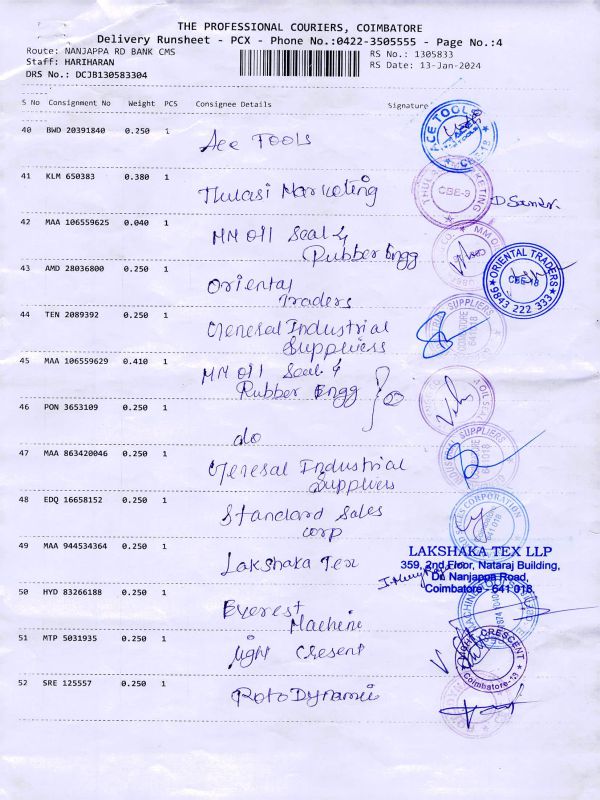 THE PROFESSIONAL COURIERS, COIMBATORE
Delivery Runsheet - PCX - Phone No.:0422-3505555 - Page No.:4
Route: NANJAPPA RD BANK CMS
RS No.: 1305833
Staff: HARIHARAN
RS Date: 13-Jan-2024
DRS No.: DCJB130583304
S No Consignment No Weight PCS Consignee Details Signature
40 BWD 20391840 0.250 1
Ace TOOLS
ACE TOOLS CBE-18
41 KLM 650383 0.380 1
Thulasi Marketing
CBE-9
42 MAA 106559625 0.040 1
MM Oil Seal &
Rubber Engg
43 AMD 28036800 0.250 1
Oriental
Traders
ORIENTAL TRADERS CBE-18 9843 222 333
44 TEN 2089392 0.250 1
General Industrial
Suppliers
SUPPLIERS
45 MAA 106559629 0.410 1
MM Oil Seal &
Rubber Engg
46 PON 3653109 0.250 1
do
47 MAA 863420046 0.250 1
General Industrial
Suppliers
SUPPLIERS
48 EDQ 16658152 0.250 1
Standard Sales
Corp
CORPORATION
49 MAA 944534364 0.250 1
Lakshaka Tex
LAKSHAKA TEX LLP
359, 2nd Floor, Nataraj Building,
Dr. Nanjappa Road,
Coimbatore - 641 018.
50 HYD 83266188 0.250 1
Everest
Machine
51 MTP 5031935 0.250 1
Light Cresent
CRESCENT
Coimbatore-18
52 SRE 125557 0.250 1
Roto Dynamic